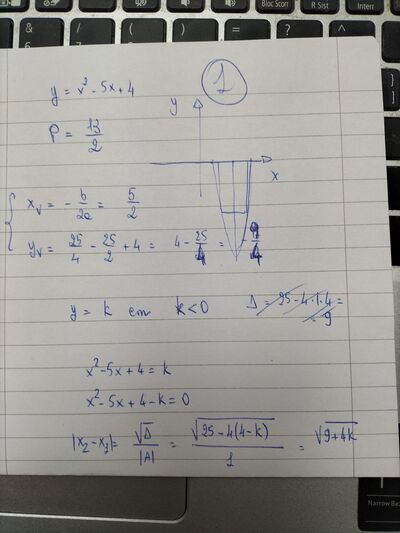 Bloc Scorr
R Sist
Interr
&
6
7
=
1
y = x² - 5x + 4
y
P = 13/2
x
{ x_v = - b/2a = 5/2
y_v = 25/4 - 25/2 + 4 = 4 - 25/4 = - 9/4
y = k con k < 0 Δ = 25 - 4·1·4 = 9
x² - 5x + 4 = k
x² - 5x + 4 - k = 0
|x₂ - x₁| = √Δ/|A| = √25 - 4(4 - k)/1 = √9 + 4k
Narrow Bez